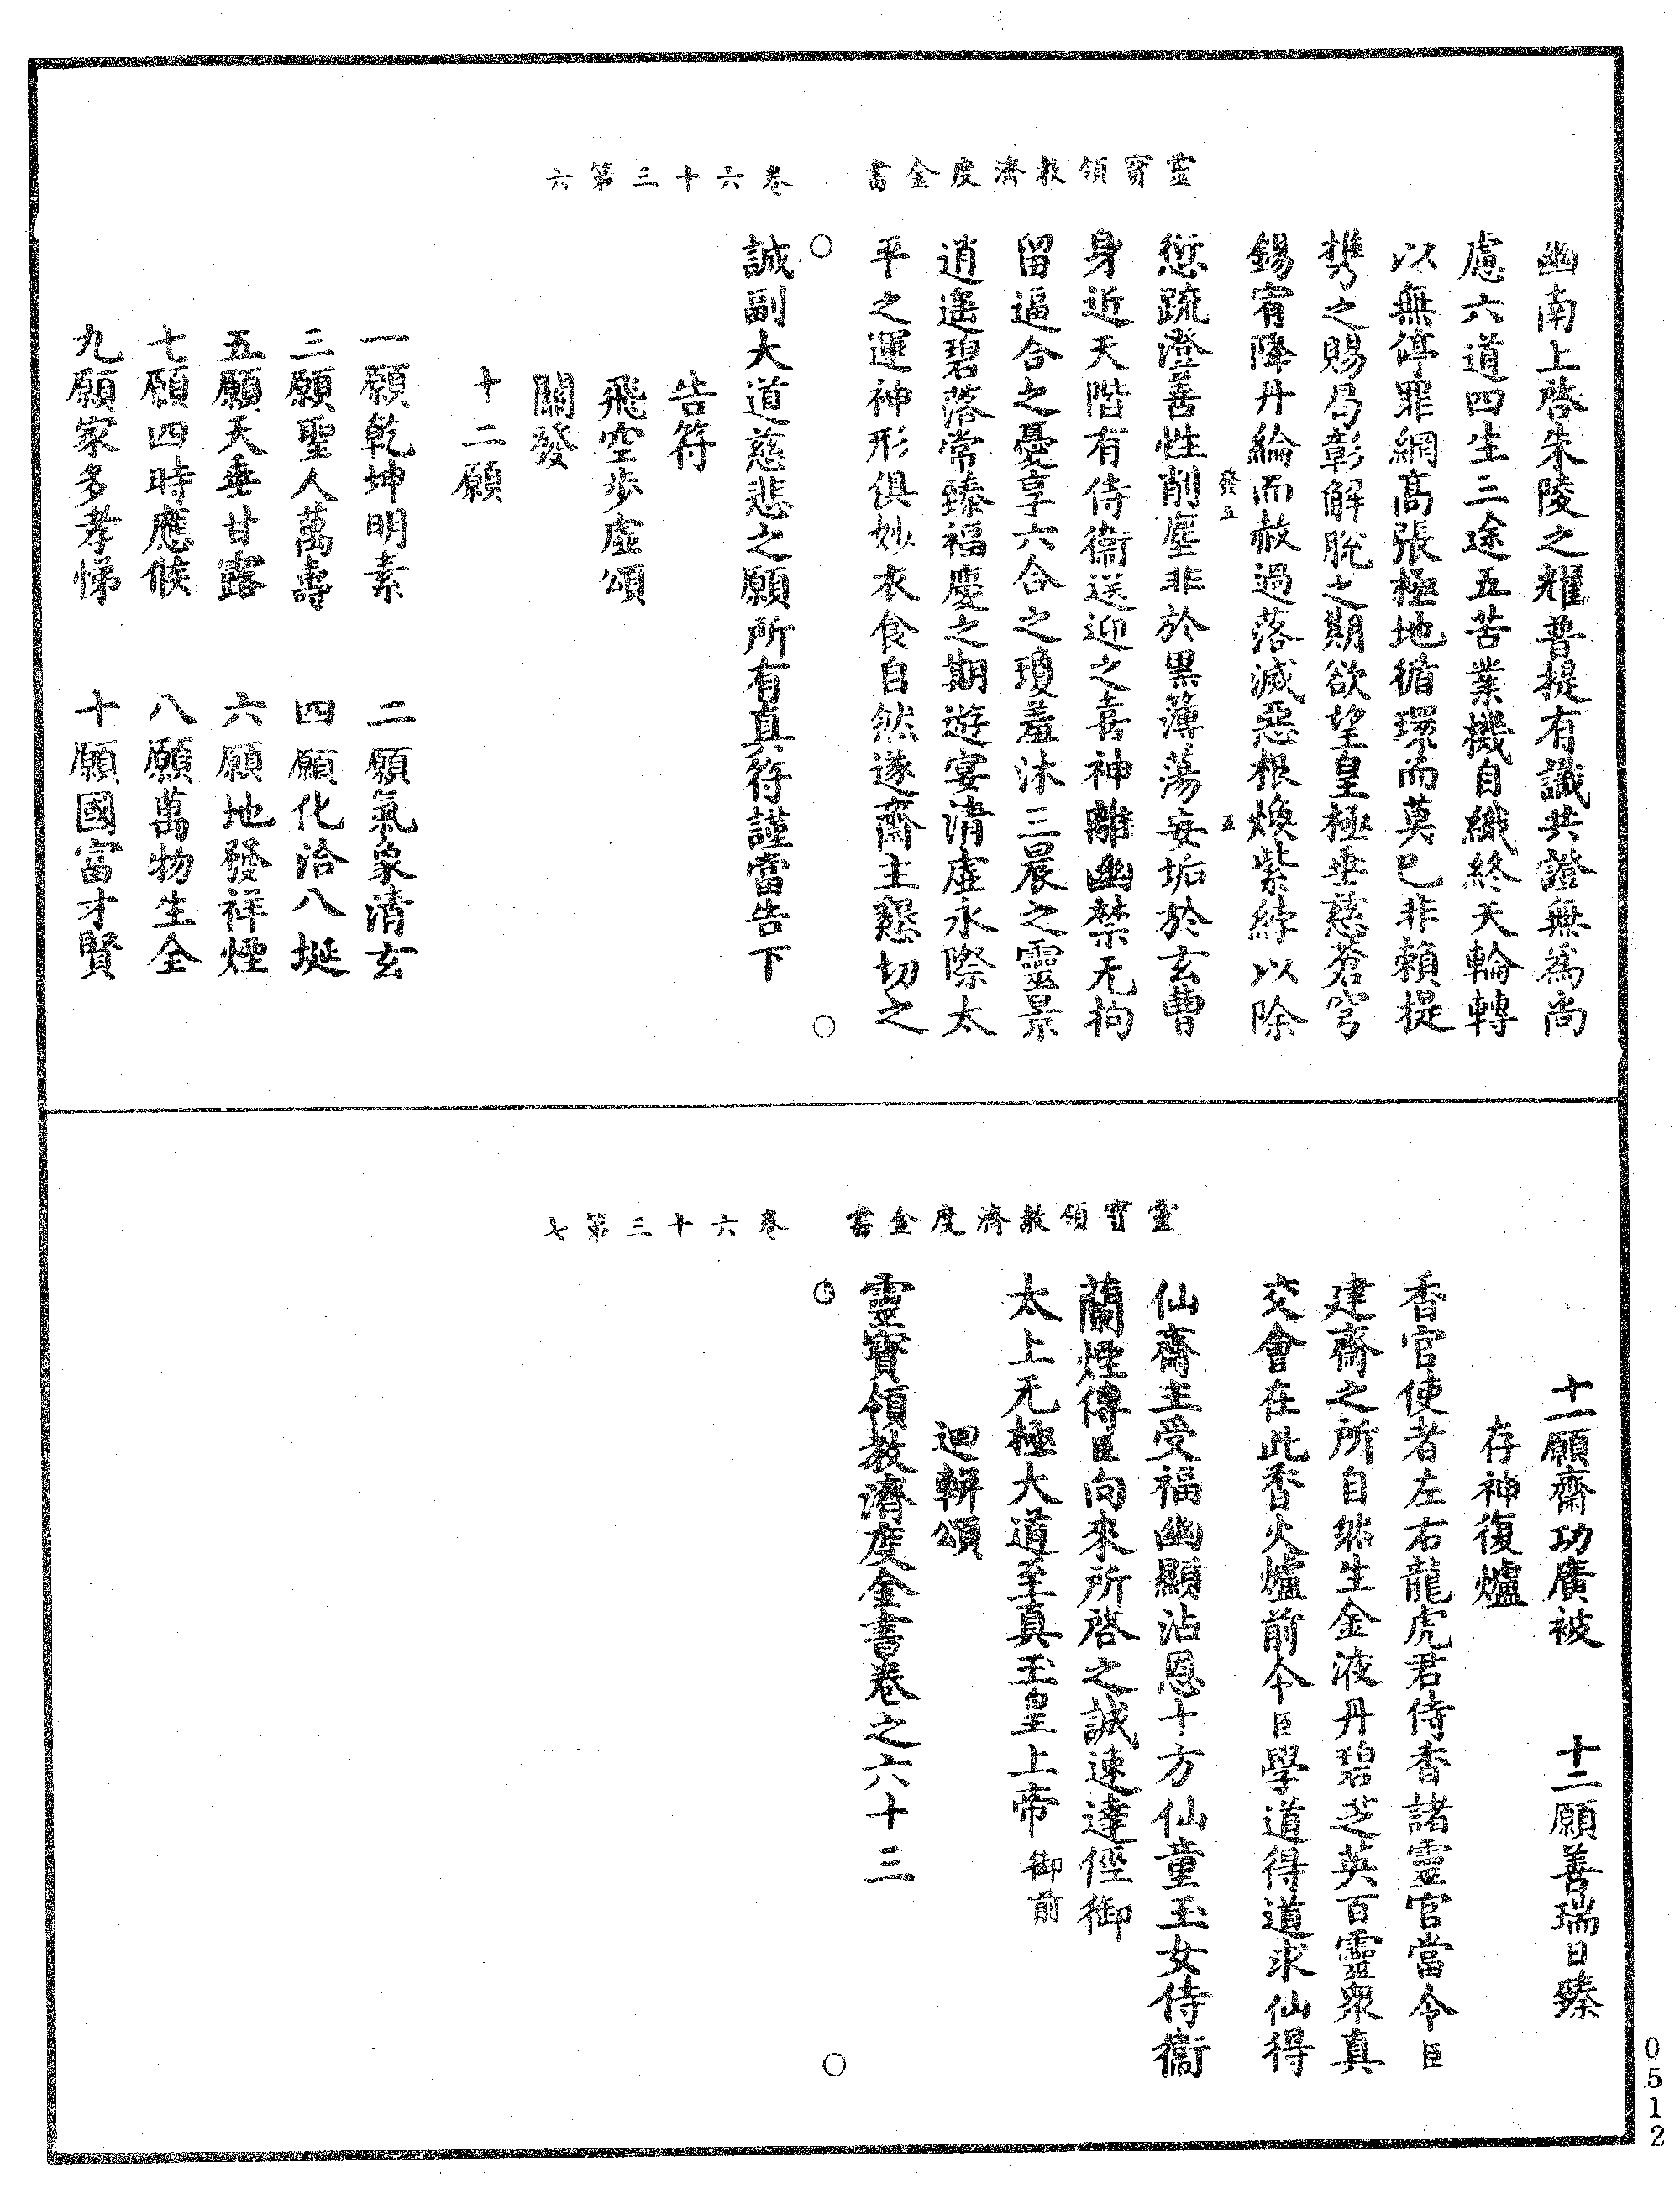 靈寶領教濟度金書　卷六十三第六
幽南上啓朱陵之耀普提有識共證無爲尚
慮六道四生三途五苦業機自織終天輪轉
以無停罪網高張極地循環而莫已非賴提
㩦之賜曷彰解脫之期欲望皇極垂慈蒼穹
錫宥降丹綸而赦過落滅惡根煥紫綍以除
愆疏澄善性削塵非於黑簿蕩妄垢於玄曹
身近天階有侍衛送迎之喜神離幽禁无拘
留逼合之憂享六合之瓊羞沐三晨之靈景
逍遙碧落常臻福慶之期遊宴清虛永際太
平之運神形俱妙衣食自然遂齋主懇切之
誠副大道慈悲之願所有真符謹當告下
告符
飛空步虛頌
關發
十二願
一願乾坤明素　二願氣象清玄
三願聖人萬壽　四願化洽八埏
五願天垂甘露　六願地發祥煙
七願四時應候　八願萬物生全
九願家多孝悌　十願國富才賢
靈寶領教濟度金書　卷六十三第七
十一願齋功廣被　十二願善瑞日臻
存神復爐
香官使者左右龍虎君侍香諸靈官當令臣
建齋之所自然生金液丹碧芝英百靈衆真
交會在此香火爐前令臣學道得道求仙得
仙齋主受福幽顯沾恩十方仙童玉女侍衛
蘭煙傳臣向來所啓之誠速達徑御
太上无極大道至真玉皇上帝御前
迴軿頌
靈寶領教濟度金書卷之六十三
0512